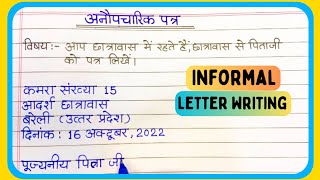 अनौपचारिक पत्र
विषय:- आप छात्रावास में रहते हैं, छात्रावास से पिताजी
को पत्र लिखें।
कमरा संख्या 15
आदर्श छात्रावास
बरेली (उत्तर प्रदेश)
दिनांक: 16 अक्टूबर, 2022
पूज्यनीय पिता जी
INFORMAL
LETTER WRITING